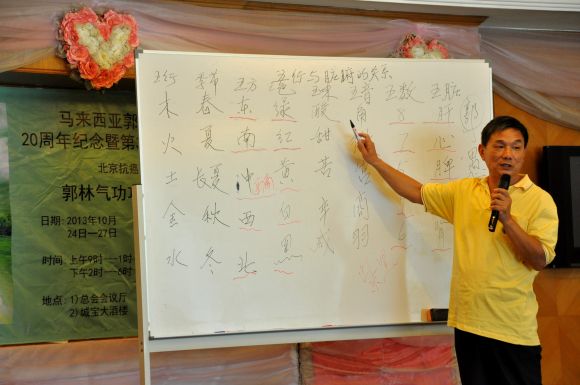 马来西亚郭
20周年纪念暨第
北京抗癌
郭林气功
日期: 2013年10月
24日—27日
时间: 上午9时—1
下午2时—6时
地点: 1) 总会会议厅
2) 城宝大酒楼
五行与脏腑的关系
五行 季节 五方 五味 五音 五数 五脏
木 春 东 绿 酸 角 8 肝
火 夏 南 红 甜 7 心
土 长夏 中 黄 苦 宫 脾
金 秋 西 白 辛 商
水 冬 北 黑 咸 羽 肾